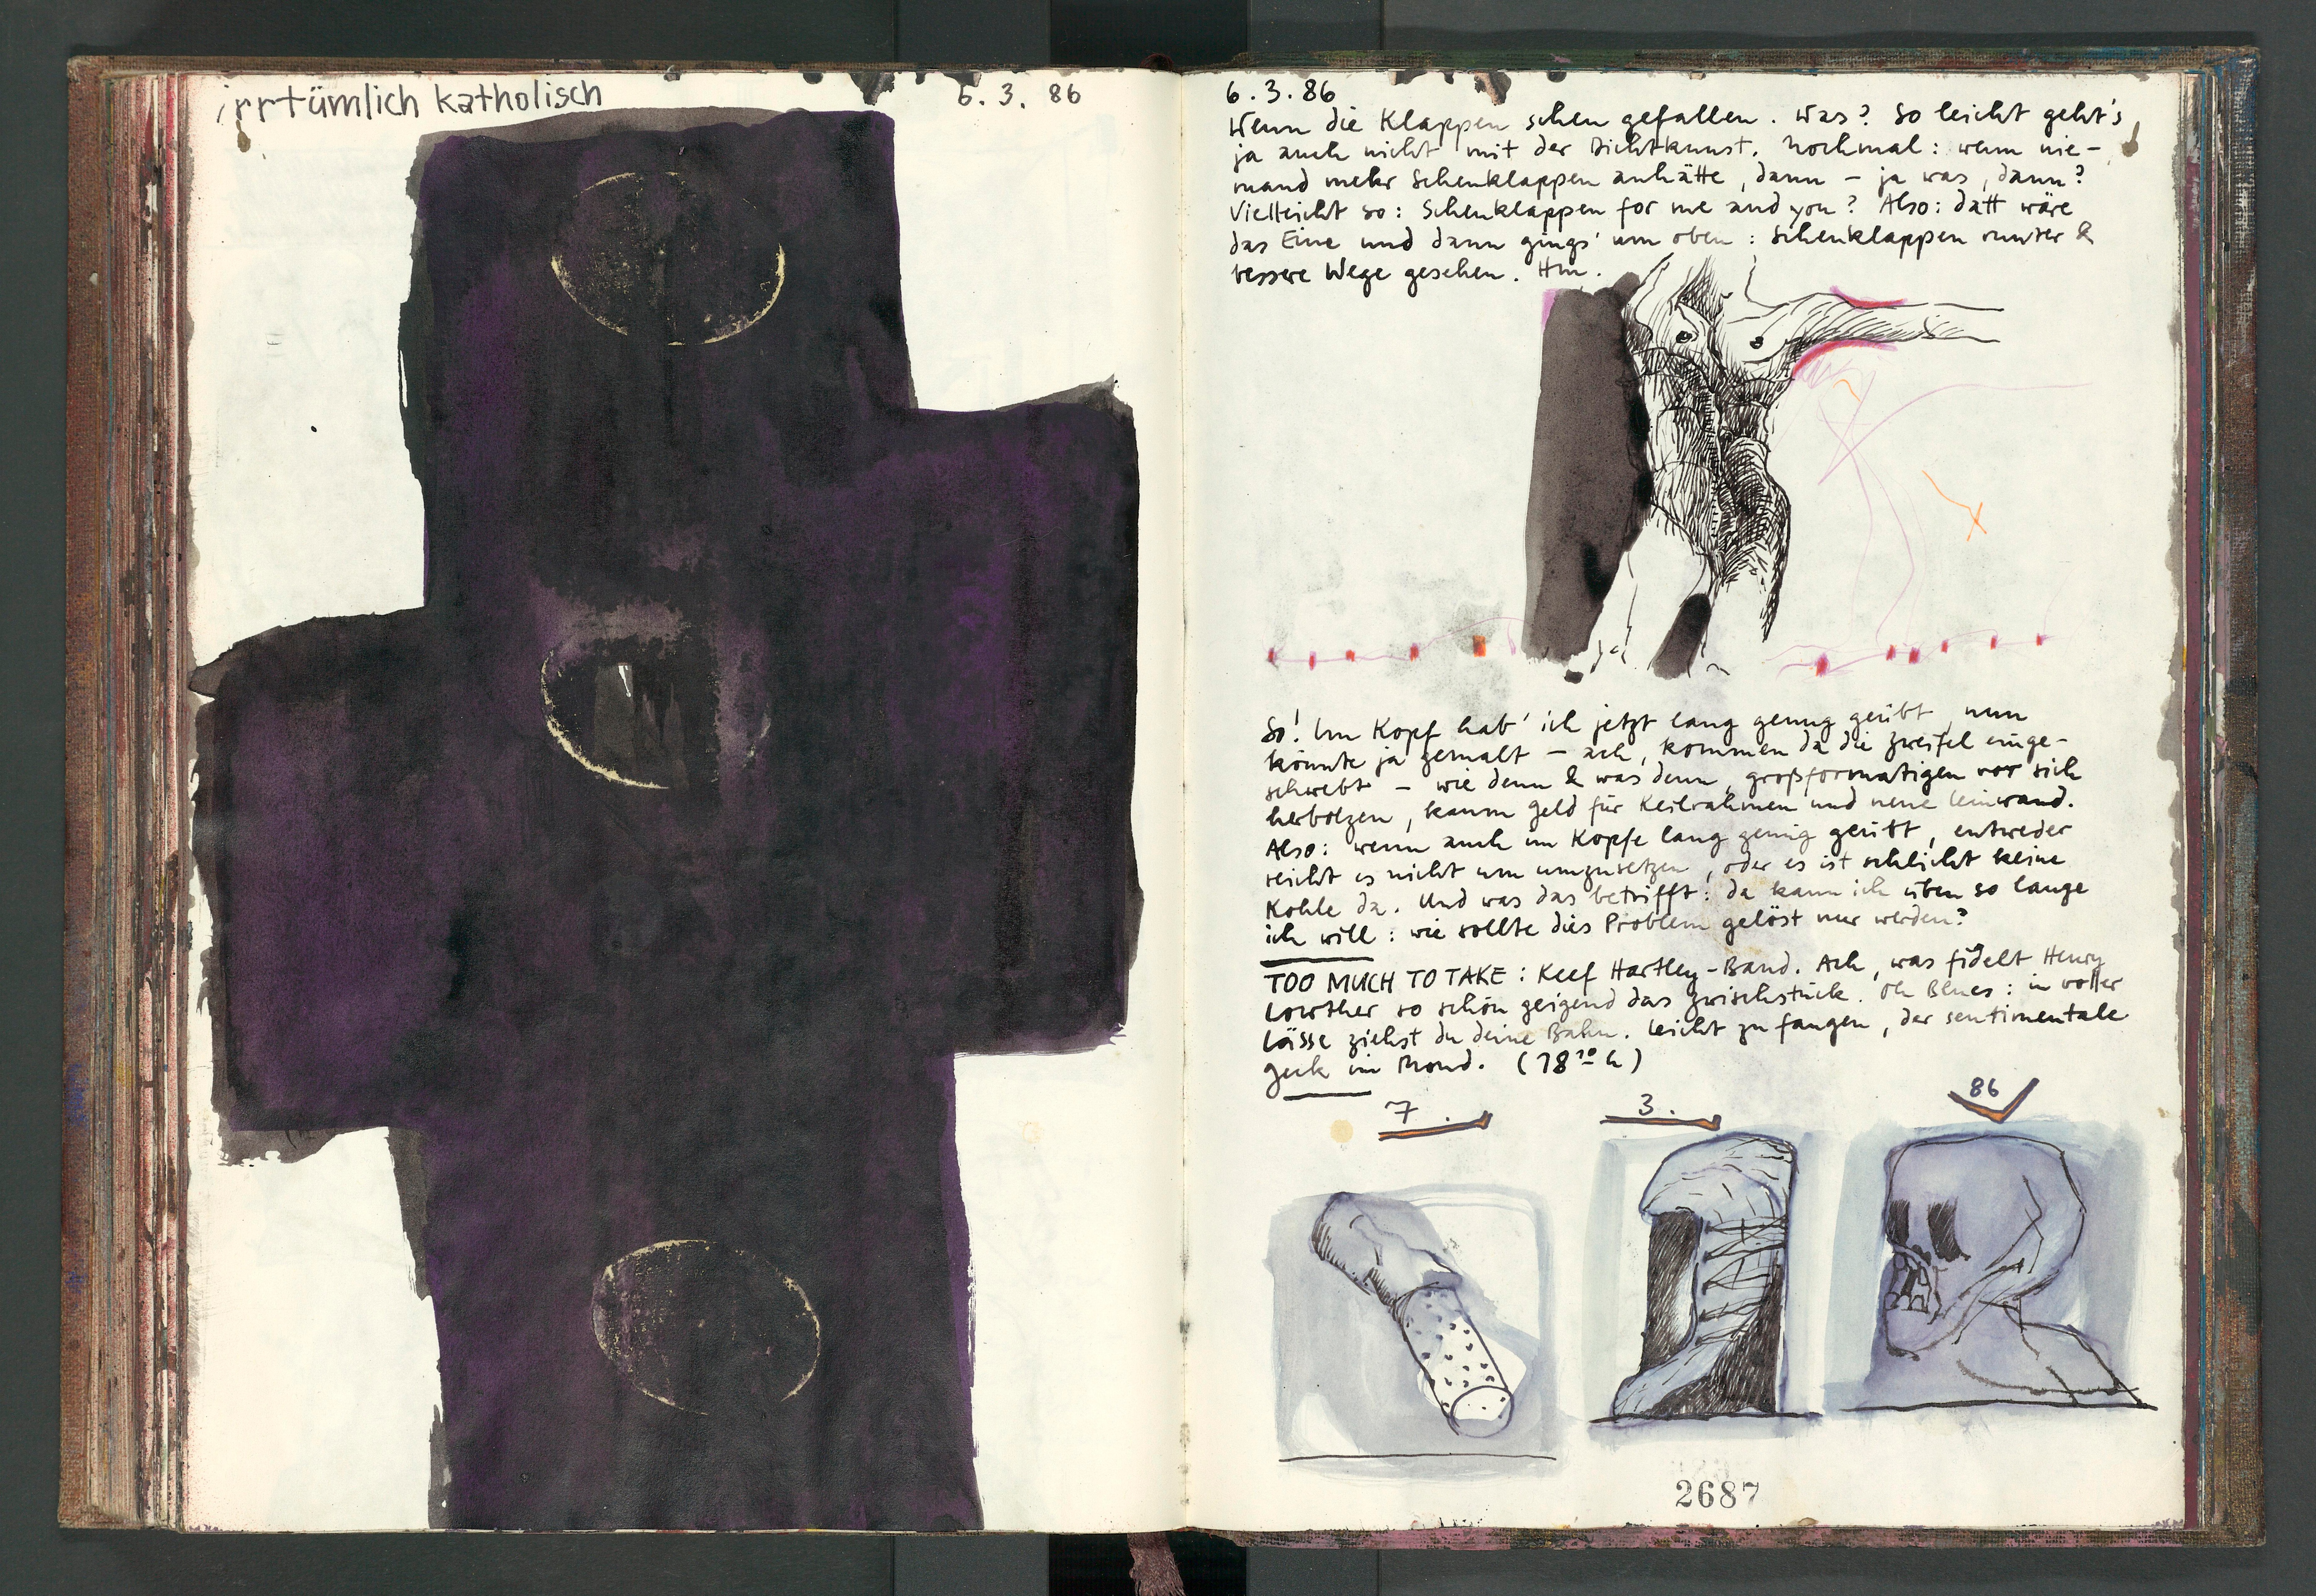 irrtümlich katholisch
6. 3. 86
6. 3. 86
Wenn die Klappen schen gefallen. Was? So leicht geht's
ja auch nicht mit der Dichtkunst. Nochmal: wenn nie-
mand mehr Scheuklappen anhätte, dann – ja was, dann?
Vielleicht so: Scheuklappen for me and you? Also: datt wäre
das Eine und dann gings' um oben: Scheuklappen runter &
bessere Wege gesehen. Hm.
So! Im Kopf hab' ich jetzt lang genug geübt, nun
könnte ja gemalt – ach, kommen da die Zweifel einge-
schwebt – wie denn & was denn, großformatigen vor sich
herbolzen, kaum Geld für Keilrahmen und neue Leinwand.
Also: wenn auch im Kopfe lang genug geübt, entweder
reicht es nicht um umzusetzen, oder es ist schlicht keine
Kohle da. Und was das betrifft: da kann ich üben so lange
ich will: wie sollte dies Problem gelöst nur werden?
TOO MUCH TO TAKE: Keef Hartley-Band. Ach, was fidelt Henry
Lowther so schön geigend das Zwischstück. Oh Blues: in voller
Lässe ziehst du deine Bahn. Leicht zu fangen, der sentimentale
Geck im Mond. (18¹⁰ h)
7. 3. 86
2687